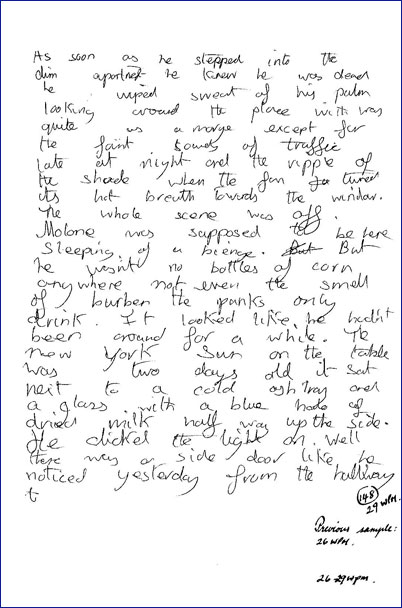 As soon as he stepped into the
dim apartnet he knew he was dead
he wiped sweat of his palm
looking around the place with was
quite as a morge except for
the faint sounds of traffic
late at night and the ripple of
the shade when the fan turned
its hot breath towards the window.
The whole scene was off.
Molone was supposed to be here
sleeping of a bienge. But But
he wasn't no bottles of corn
anywhere not even the smell
of burben the punks only
drink. It looked like he hadn't
been around for a while. The
new york Sun on the table
was two days old it sat
neit to a cold ash tray and
a glass with a blue halo of
dried milk half way up the side.
He clicked the light on. Well
there was a side door like he
noticed yesterday from the hallway
t
148
29 WPM.
Previous sample:
26 WPM.
26-29 wpm.